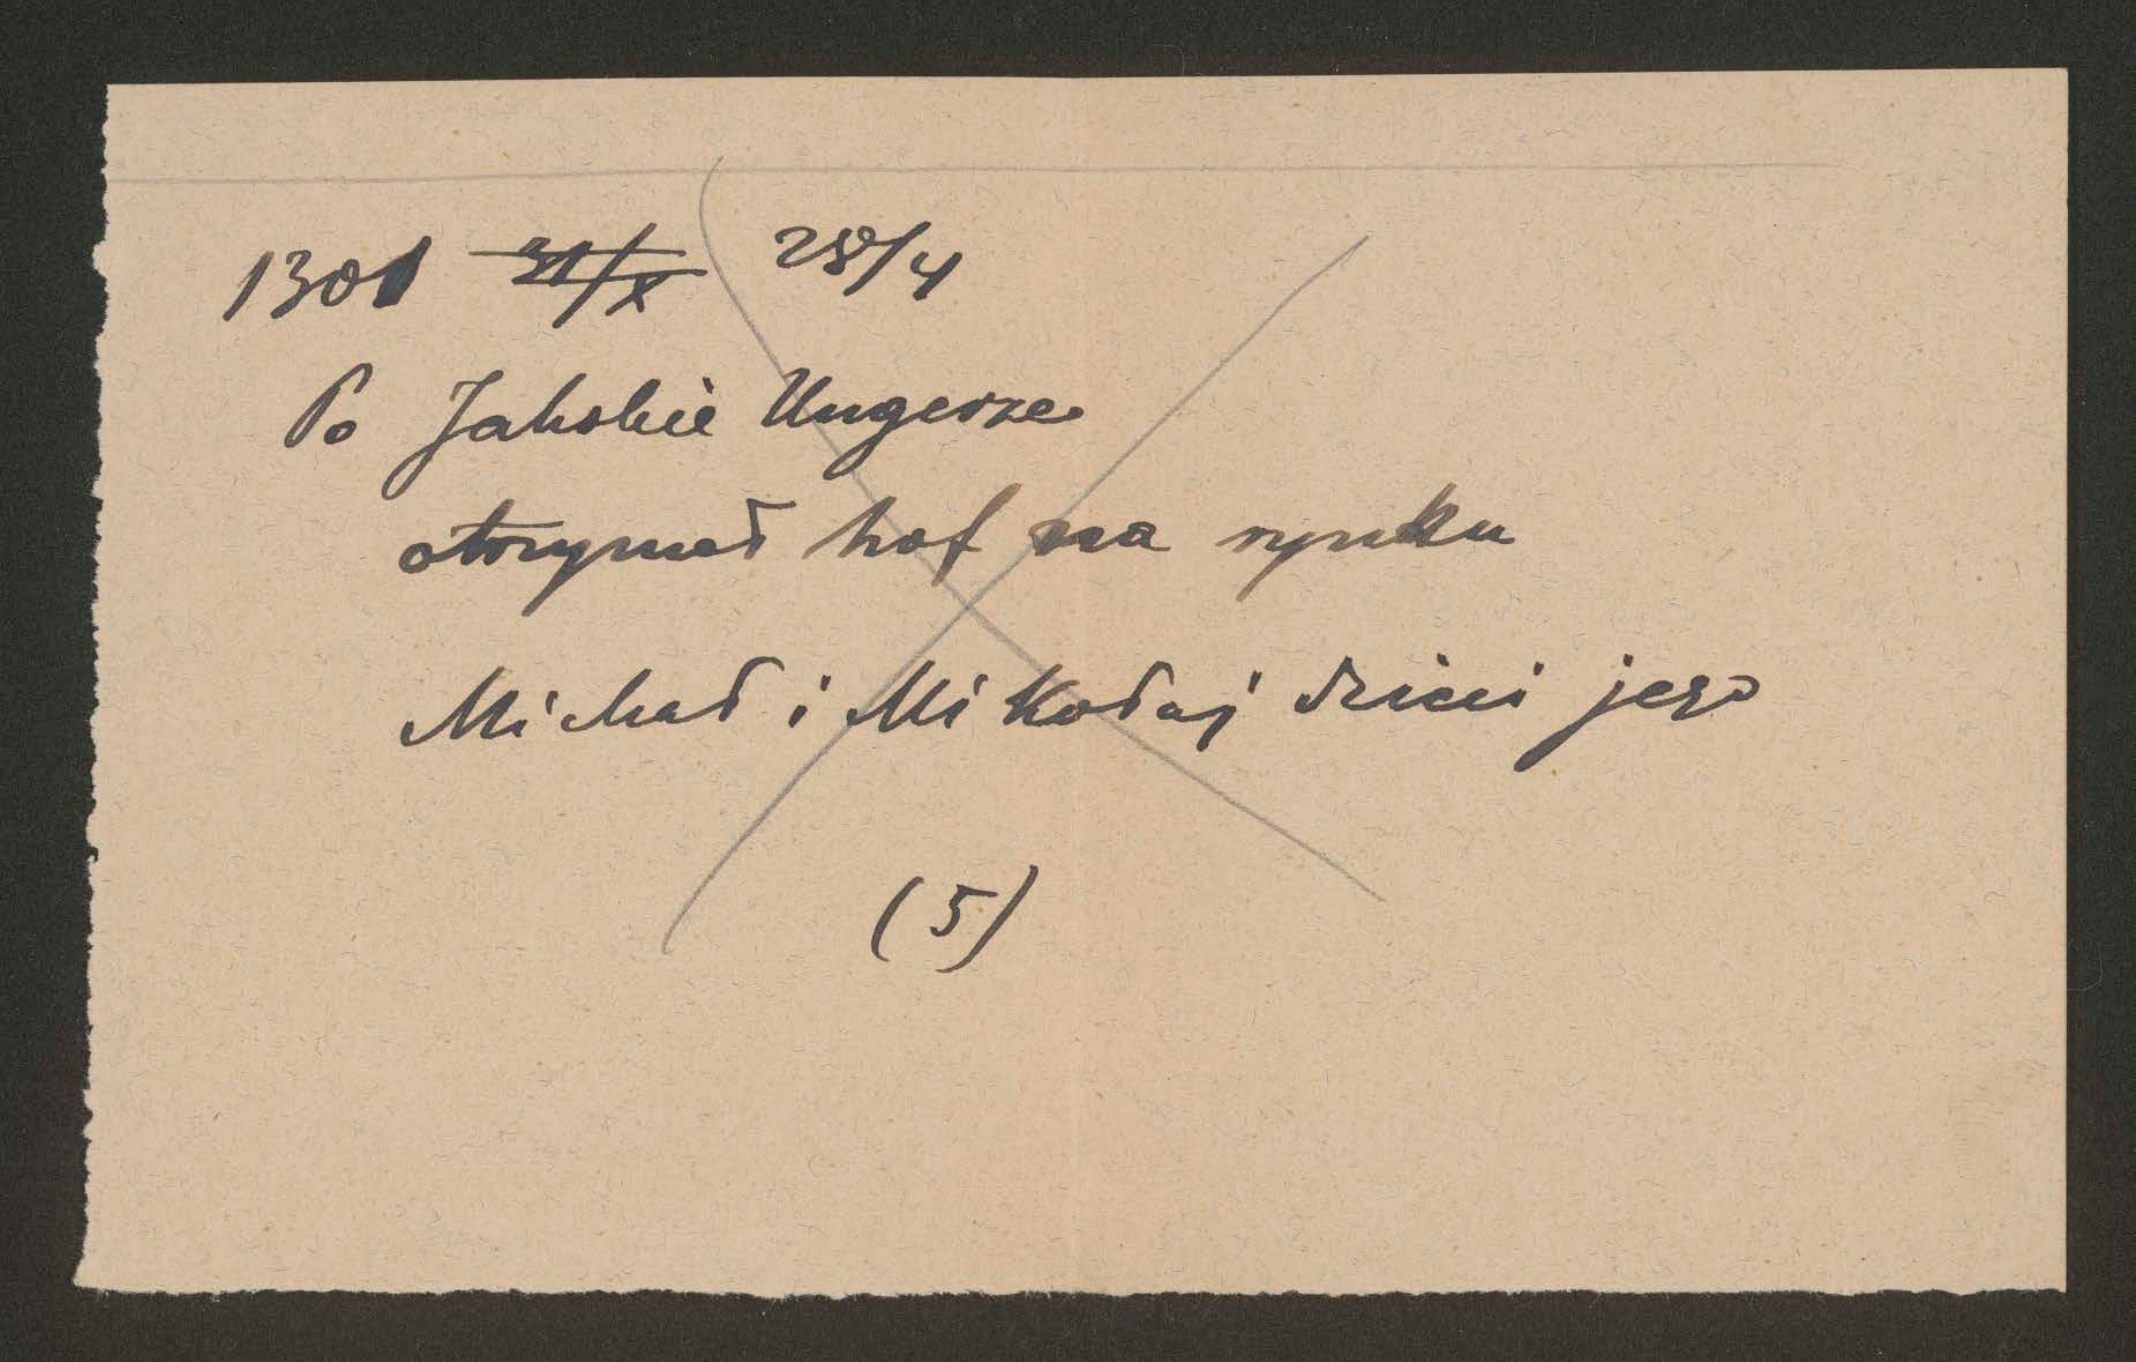 1301 31/X 28/4
Po Jakobie Ungerze
otrzymał hof na rynku
Michał i Mikołaj dzieci jego
(5)